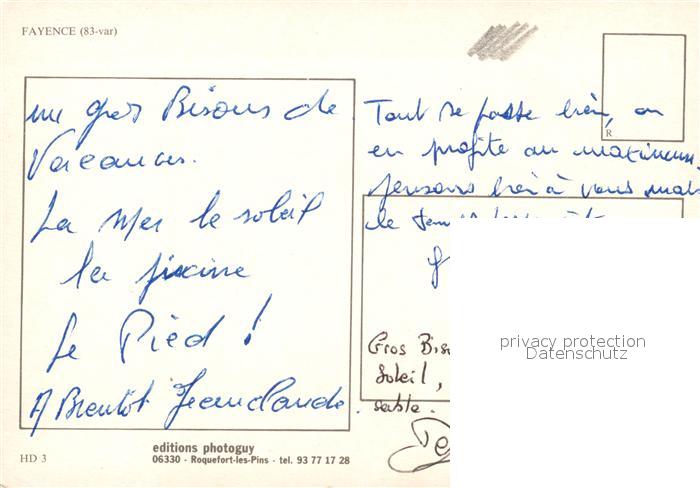 FAYENCE (83-var)
un gros Bisous de
Vacances.
La Mer le soleil
la piscine
Le Pied !
A Bientôt Jeanclaude.
Tout se passe bien, on
en profite au maximum.
pensons bien à vous mais
le temps
R
Gros
Soleil,
sable.
privacy protection
Datenschutz
HD 3
editions photoguy
06330 - Roquefort-les-Pins - tel. 93 77 17 28